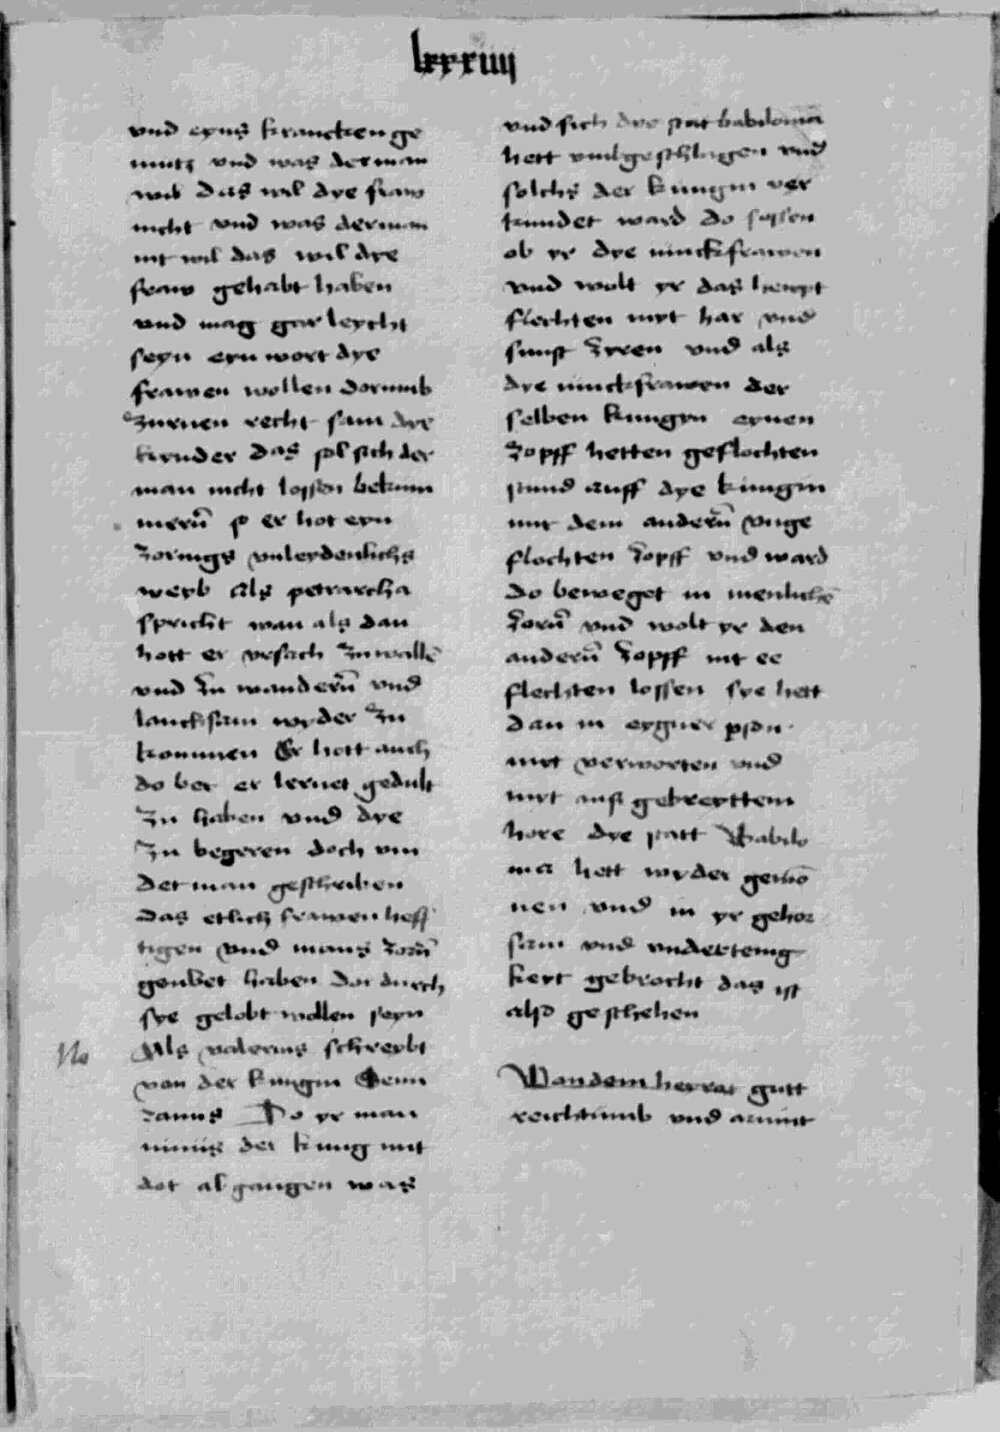 lxxxiiij
vnd eyns krancken ge
mutz vnd was der man
wil das wil dye fraw
nicht vnd was der man
nit wil das wil dye
fraw gehabt haben
vnd mag gar leycht
seyn eyn wort dye
frawen wollen dorumb
zurnen recht sam dye
kynder das sol sich der
man nicht lossen bekum
mern̄ so er hot eyn
zornigs vnleydenlichs
weyb Als petrarcha
spricht wan als dan
hott er vrsach zu wallē
vnd zu wandern̄ vnd
lancksam wyder zu
kommen Er hott auch
do bey er lernet gedult
zu haben vnd dye
zu begeren doch vin
det man geschriben
das etlich frawen heff
tigen vnd mans zorn̄
geubet haben dar durch
sye gelobt wollen seyn
Als valerius schreybt
von der kungin Semi
ramis Do yr man
ninus der kung mit
dot abgangen was
vnd sich dye stat babilonia
hett vmbgeschlagen vnd
solchs der kungin ver
kundet ward do sossen
ob yr dye iunckfrawen
vnd wolt yr das hewpt
flechten myt har vnd
sunst zyren vnd als
dye iunckfrawen der
selben kungyn eynen
zopff hetten geflochten
stund auff dye kungin
mit dem andern̄ vnge
flochten zopff vnd ward
do beweget in menlichē
zorn̄ vnd wolt yr den
andern̄ zopff nit ee
flechten lossen sye hett
dan in eygner pson
myt verworten vnd
myt auß gebreyttem
hore dye statt Babilo
nia hett wyder gewō
nen vnd in yr gehor
sam vnd vndertenig
keyt gebrocht das ist
also geschehen
Von dem heyrat gutt
reichtumb vnd armut